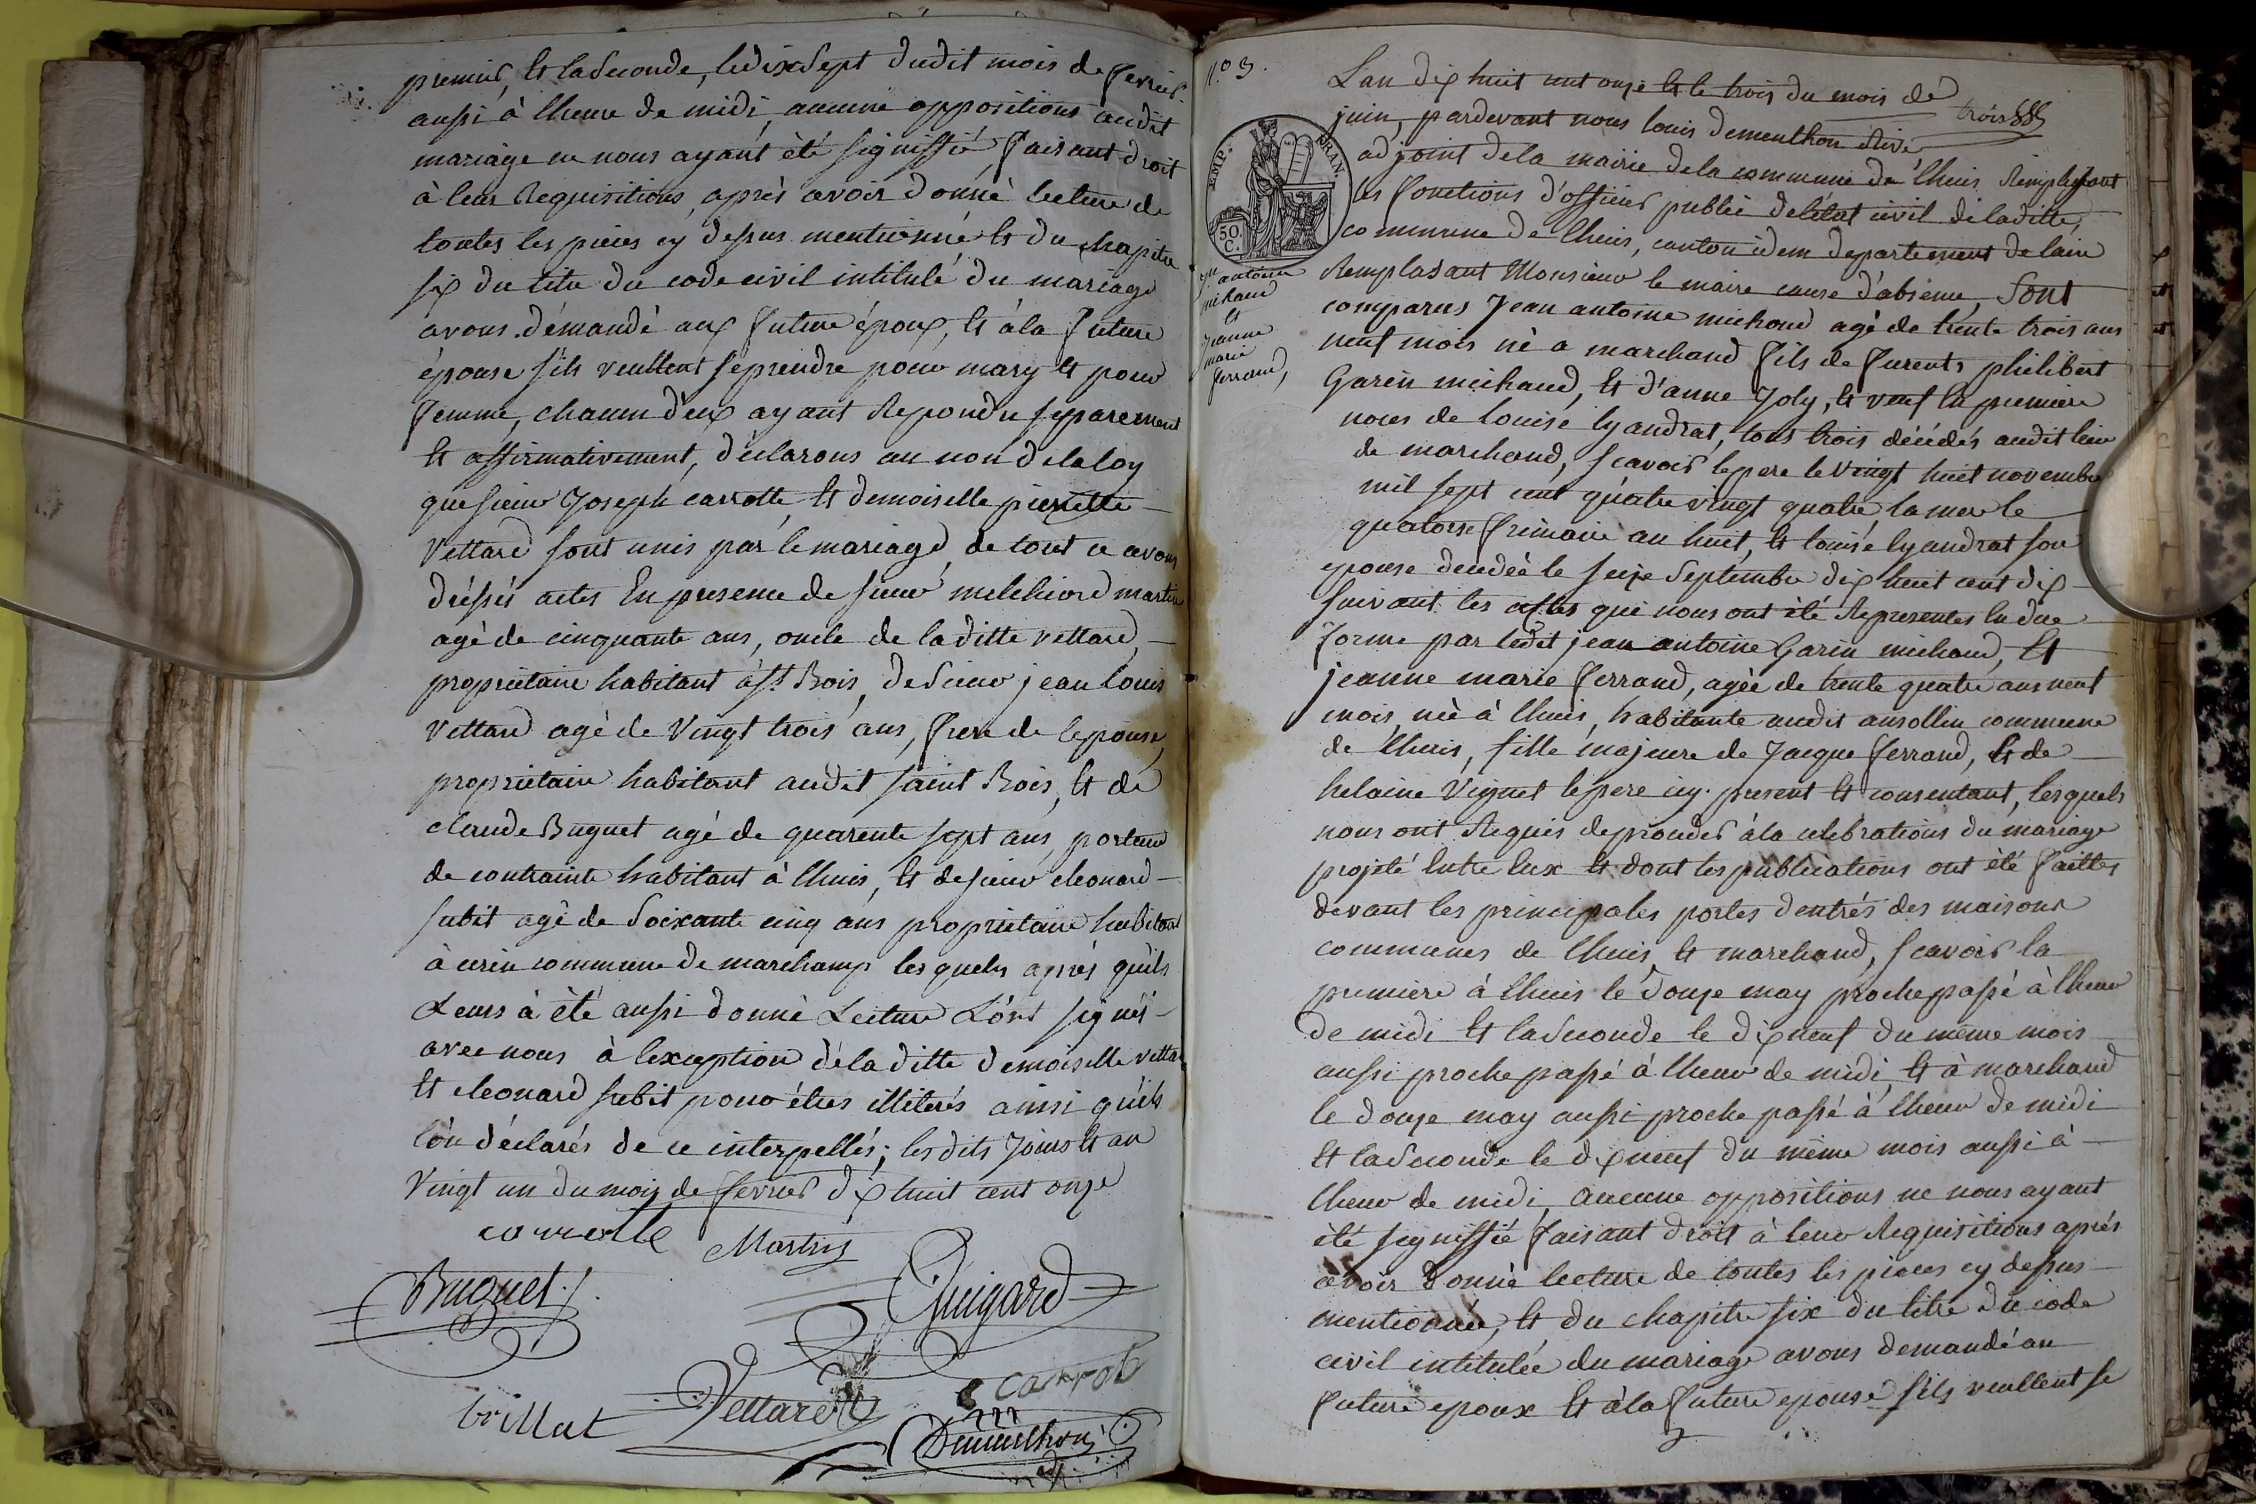 premier, et la seconde, le dix sept dudit mois de fevrier
aussi à lheure de midi, aucune oppositions audit
mariage ne nous ayant été signiffié, faisant droit
à leur Requisitions, après avoir donné lecture de
toutes les pieces cy dessus mentionné et du chapitre
six du titre du code civil intitulé du mariage
avons démandé aux future époux, et à la future
épouse s'ils veullent se prendre pour mary et pour
femme, chacun d'eux ayant Repondu separement
et affirmativement, déclarons au non de la loy
que sieur Joseph carrotte, et demoiselle pierrette
Vettard sont unis par le mariage, de tout ce avons
dréssés actes En presence de sieur melchiord martin
agé de cinquante ans, oncle de la ditte vettard,
proprietaire habitant à st Bois, de sieur jean louis
Vettard agé de Vingt trois ans, frere de lepouse,
proprietaire habitant audit saint Bois, et de
claude Buguet agé de quarente sept ans, porteur
de contrainte habitant à lhuis, et de sieur cleonard
subit agé de soixante cinq ans proprietaire habitant
à cerin commune de marchamp lesquels après quils
Leurs à été aussi donné Lecture L'ont signés
avec nous à lexception dela ditte demoiselle vettard
et cleonard subit pour étres illiterés ainsi quils
l'on déclarés de ce interpellés; les dits jours et an
Vingt un du mois de fevrier dix huit cent onze
carrotte Martin
Buguet Guigard
brillat Vettard carrot
Demeulhon
adj
n.o 3.
Lan dix huit cent onze et le trois du mois de
juin, pardevant nous louis demeulhon
adjoint dela mairie dela commune de lhuis Remplissant
les fonctions d'officier public deletat civil de laditte
commune de lhuis, canton idem departement de lain
Remplasant Monsieur le maire cause d'absence, sont
comparus Jean antoine michaud agé de trente trois ans
neuf mois né a marchand fils de furents philibert
Garin michaud, et d'anne Joly, et veuf en premiere
noces de louise lyandrat, tous trois décédés audit lieu
de marchand, scavoir le pere le vingt huit novembre
mil sept cent quatre vingt quatre, la mere le
quatorse frimaire an huit, et louise lyandrat son
epouse decedée le seize septembre dix huit cent dix
suivant les actes qui nous ont été Representes en due
forme par ledit jean antoine Garin michaud, et
jeanne marie ferrand, agée de trente quatre ans neuf
mois, née à lhuis, habitante audit ansollin commune
de lhuis, fille majeure de Jacque ferrand, et de
helaine Vignet le pere icy present et consentant, lesquels
nous ont Requis deproceder à la celebrations du mariage
projeté Entre Eux et dont les publications ont été faittes
devant les principales portes dentrés des maisons
communes de lhuis, et marchand, scavoir la
premiere à lhuis le douze may proche passé à lheure
de midi et la seconde le dix neuf du même mois
aussi proche passé à lheure de midi, et à marchand
le douze may aussi proche passé à lheure de midi
et la seconde le dix neuf du même mois aussi à
lheure de midi, aucune oppositions ne nous ayant
été signiffié faisant droit à leur Requisitions aprés
avoir donné lecture de toutes les pieces cy dessus
mentionnée, et du chapitre six du titre du code
civil intitulée du mariage avons demandé au
future epoux et à la future epouse s'ils veullent se
trois
EMP. FRAN.
50.
C.
antoine
michaud
et
jeanne
marie
ferrand,